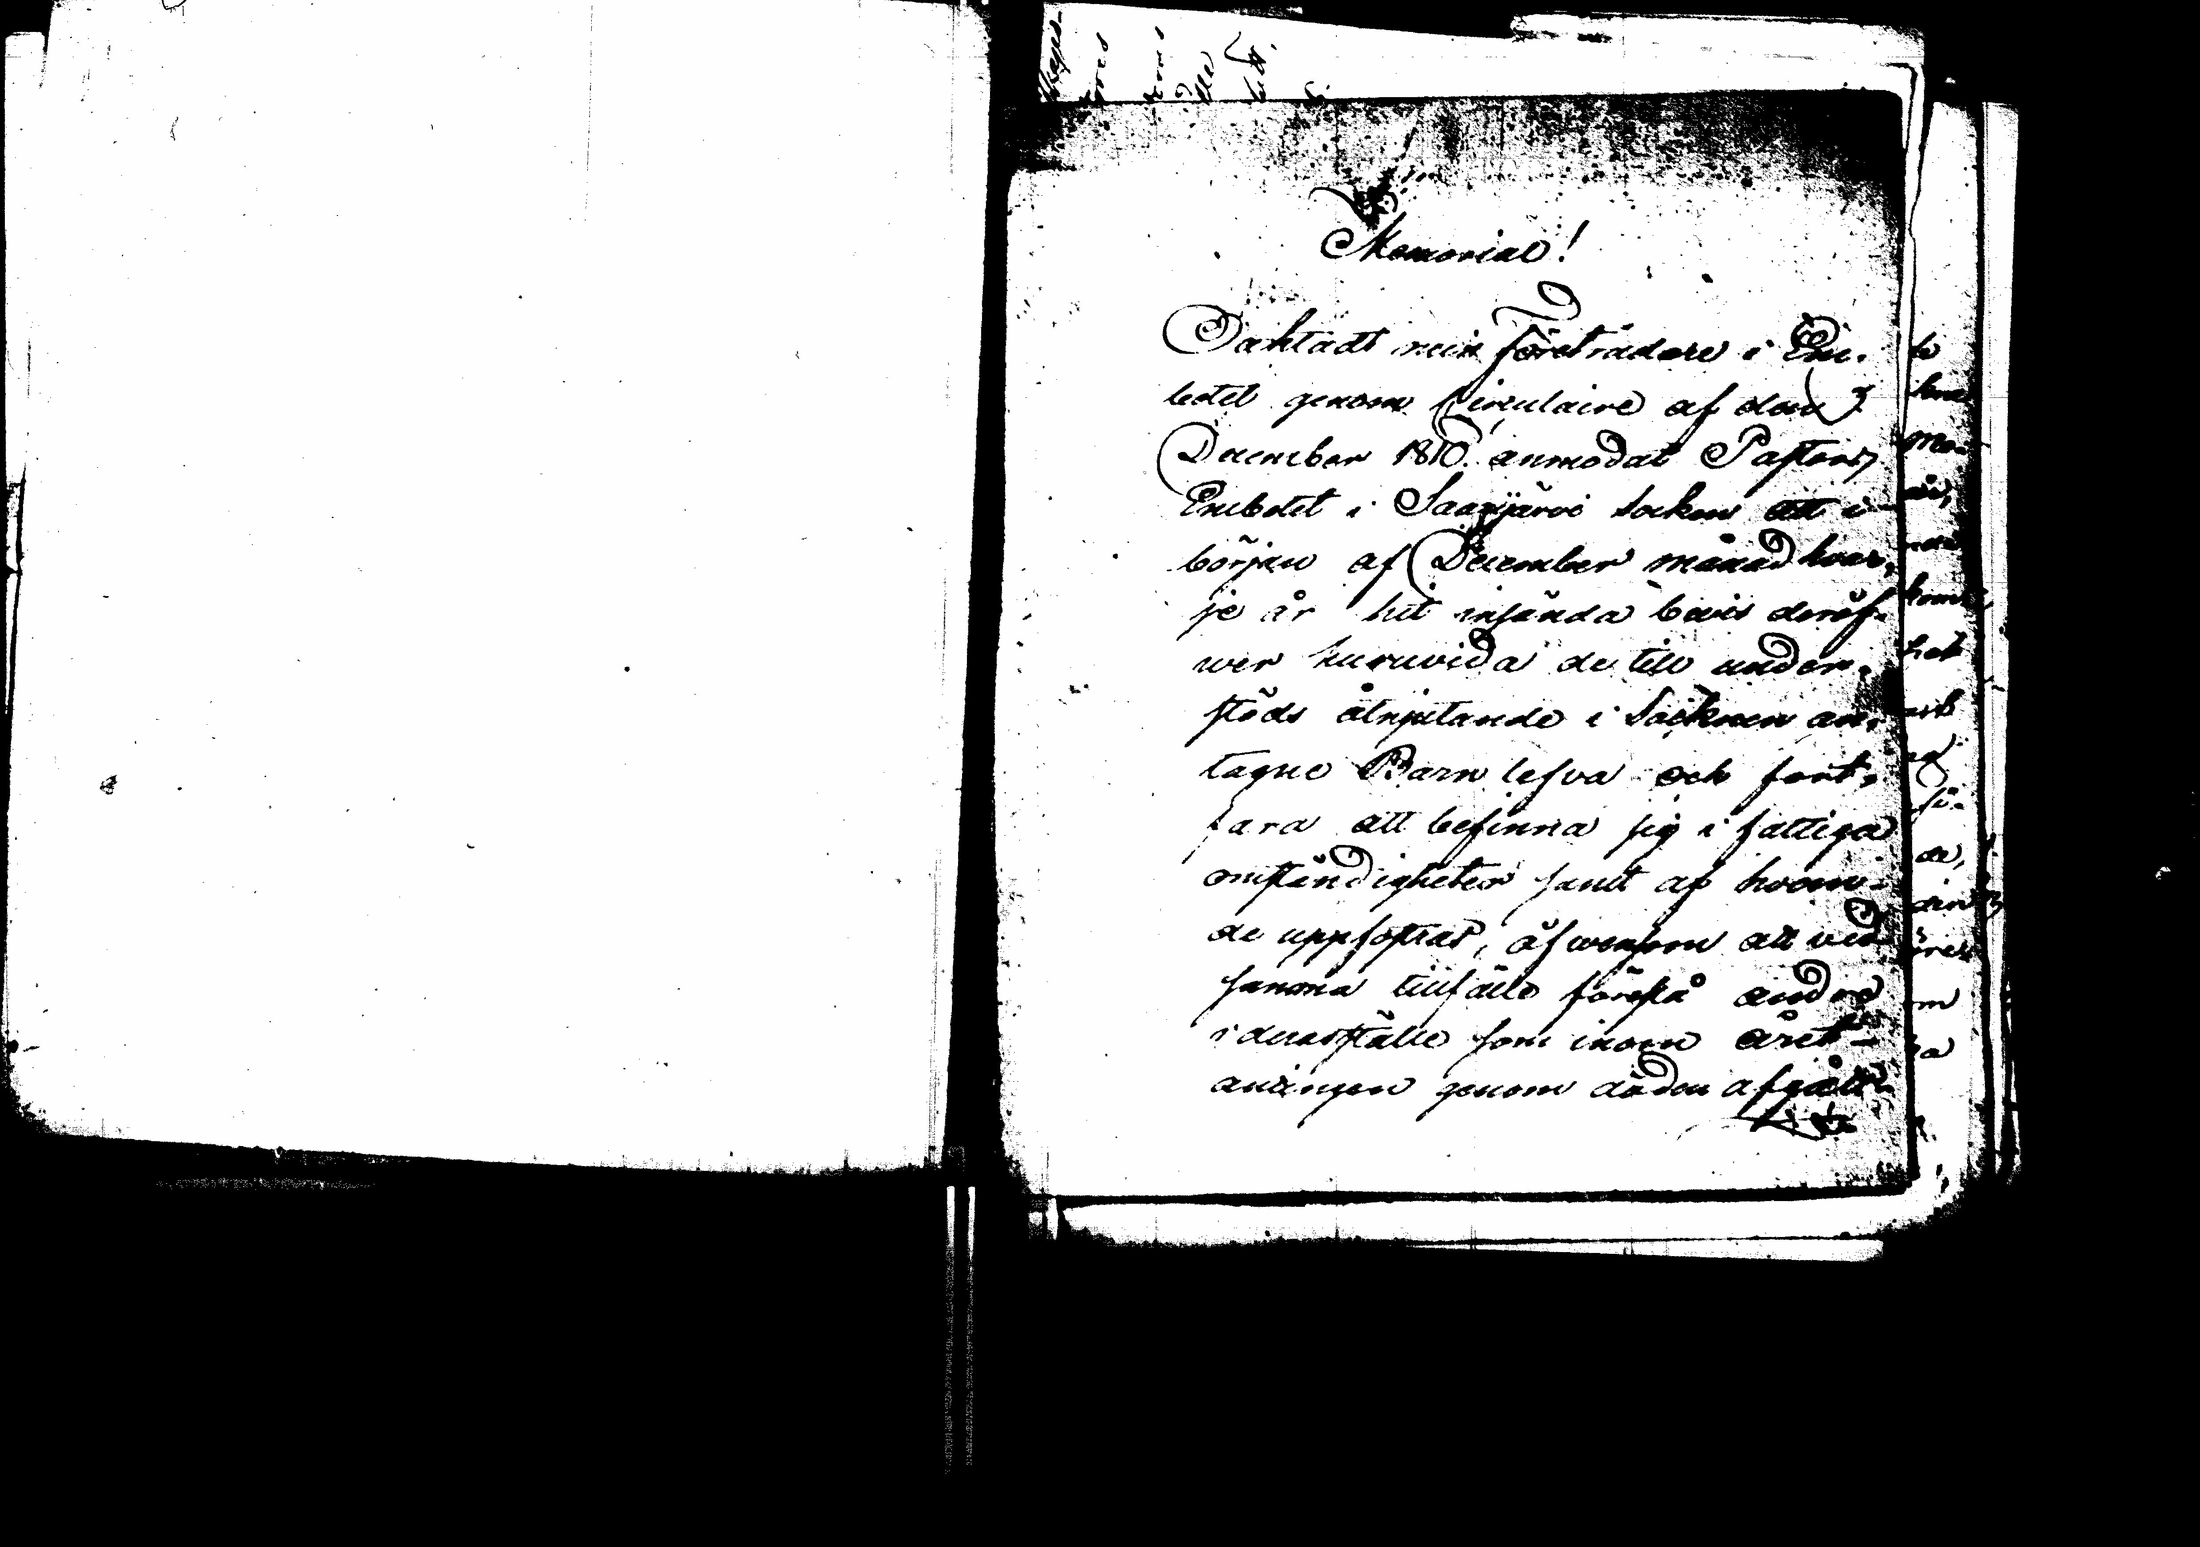 Memorial!
Oaktadt min företrädare i Em-
betet genom Circulaire af den 3
December 1810 anmodat Pastors
Embetet i Saarijärvi Socken att i
början af December månad hvar-
je år hit insända bevis deröf-
wer huruvida de till under-
stöds åtnjutande i Socknen an-
tagne Barn lefva och fort-
fara att befinna sig i fattiga
omständigheter samt af hvem
de uppfostras, äfwensom att vid
samma tillfälle föreslå andre
i deras ställe som inom året
antingen genom döden afgått